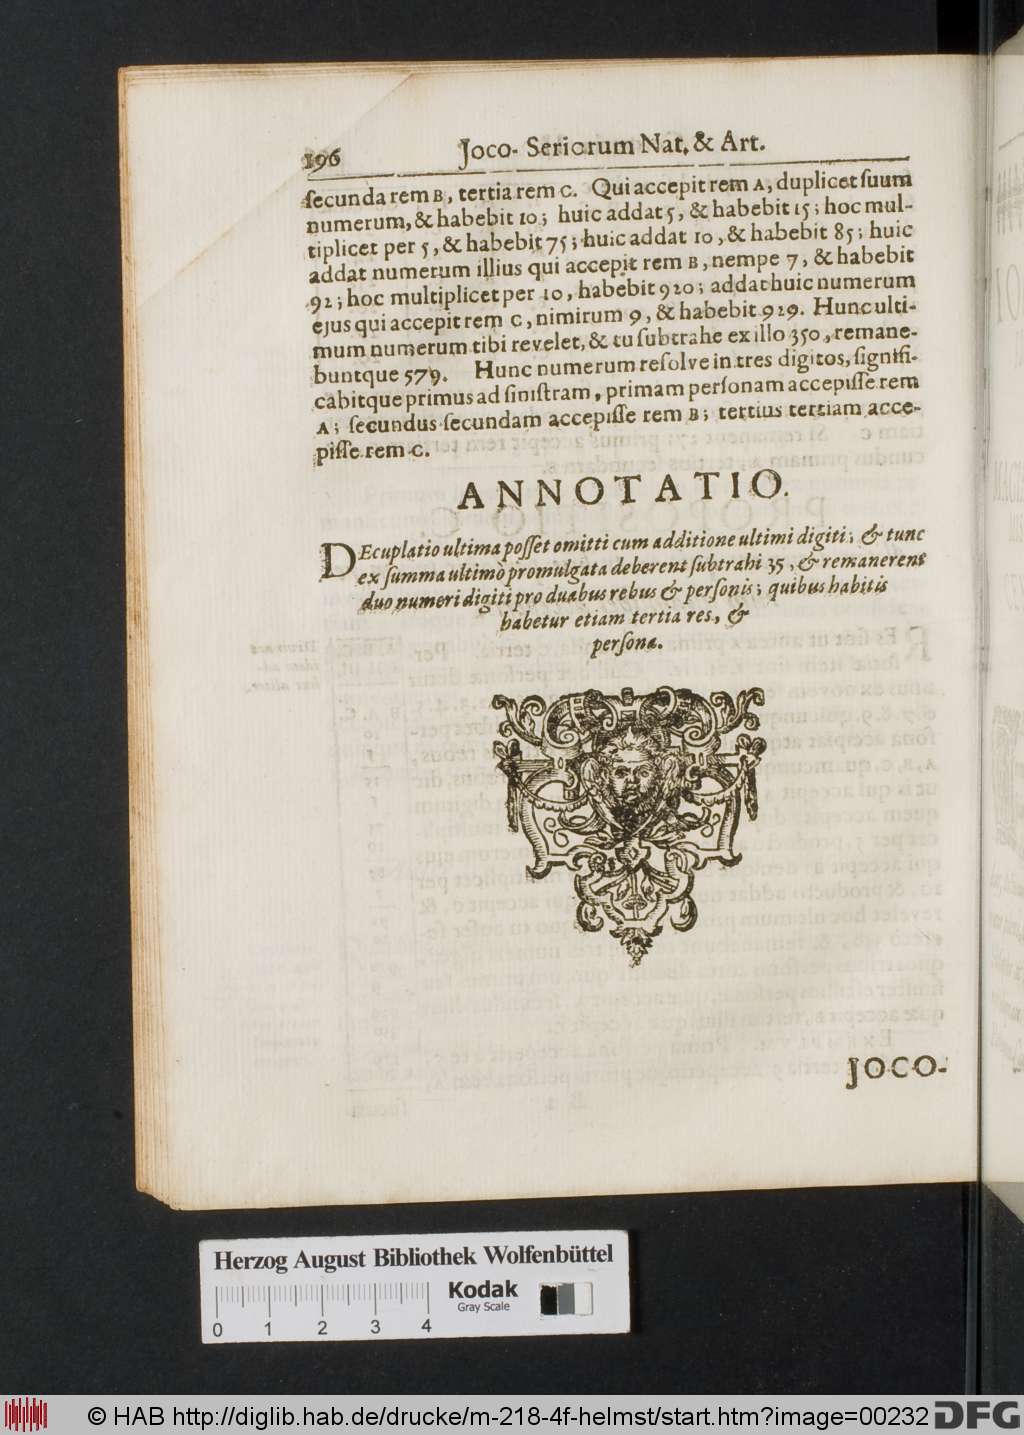 196 Joco-Seriorum Nat. & Art.
ſecunda rem B, tertia rem C. Qui accepit rem A, duplicet ſuum
numerum, & habebit 10; huic addat 5, & habebit 15; hoc mul-
tiplicet per 5, & habebit 75; huic addat 10, & habebit 85; huic
addat numerum illius qui accepit rem B, nempe 7, & habebit
92; hoc multiplicet per 10, habebit 920; addat huic numerum
ejus qui accepit rem C, nimirum 9, & habebit 929. Hunc ulti-
mum numerum tibi revelet, & tu ſubtrahe ex illo 350, remane-
buntque 579. Hunc numerum reſolve in tres digitos, ſignifi-
cabitque primus ad ſiniſtram, primam perſonam accepiſſe rem
A; ſecundus ſecundam accepiſſe rem B; tertius tertiam acce-
piſſe rem C.
ANNOTATIO.
DEcuplatio ultima poſſet omitti cum additione ultimi digiti; & tunc
ex ſumma ultimò promulgata deberent ſubtrahi 35, & remanerent
duo numeri digiti pro duabus rebus & perſonis; quibus habitis
habetur etiam tertia res, &
perſona.
JOCO-
Herzog August Bibliothek Wolfenbüttel
Kodak
Gray Scale
0 1 2 3 4
© HAB http://diglib.hab.de/drucke/m-218-4f-helmst/start.htm?image=00232 DFG